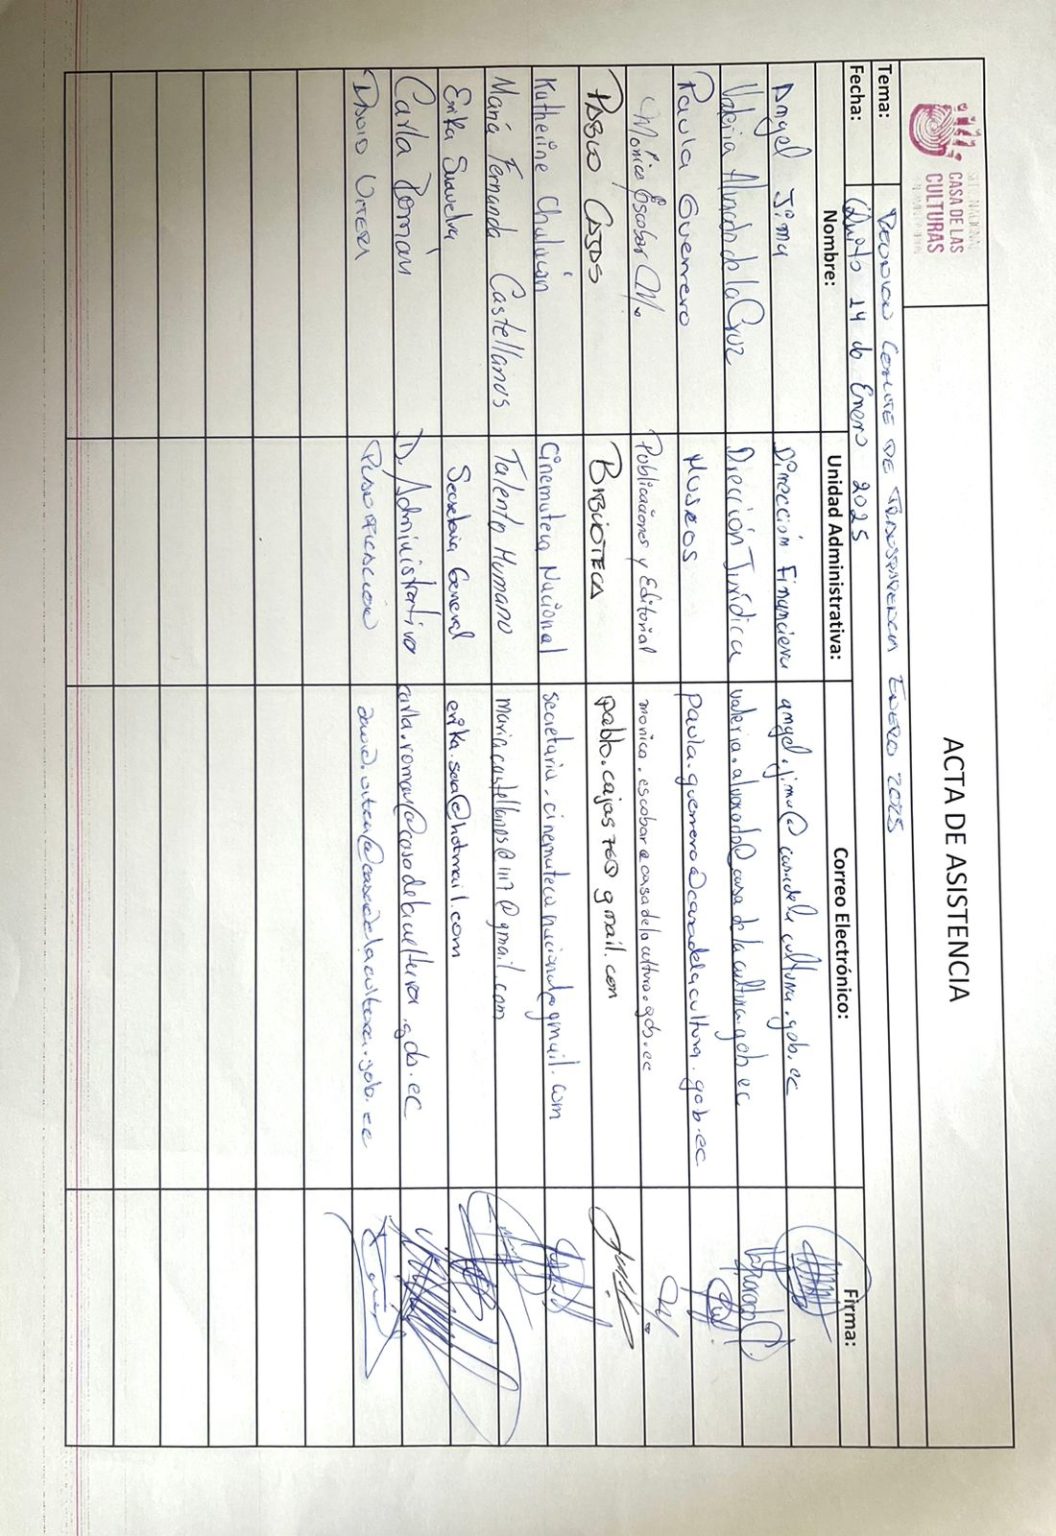 CASA DE LAS
CULTURAS
ACTA DE ASISTENCIA
Tema: REUNION COMITE DE TRANSPARENCIA ENERO 2025
Fecha: Quito 14 de Enero 2025
Nombre: Unidad Administrativa: Correo Electrónico: Firma:
Angel Jima Dirección Financiera angel.jima@casadelacultura.gob.ec
Valeria Alvarado de la Cruz Dirección Jurídica valeria.alvarado@casadelacultura.gob.ec
Paula Guerrero Museos paula.guerrero@casadelacultura.gob.ec
Mónica Escobar M. Publicaciones y Editorial monica.escobar@casadelacultura.gob.ec
PABLO CAJAS BIBLIOTECA
Katherine Chuluán Cinemateca Nacional secretaria.cinematecanacional@gmail.com
María Fernanda Castellanos Talento Humano
Erika Secretaria General erika.saa@hotmail.com
Carla Román D. Administrativa carla.roman@casadelacultura.gob.ec
DAVID VITERI PLANIFICACION david.viteri@casadelacultura.gob.ec